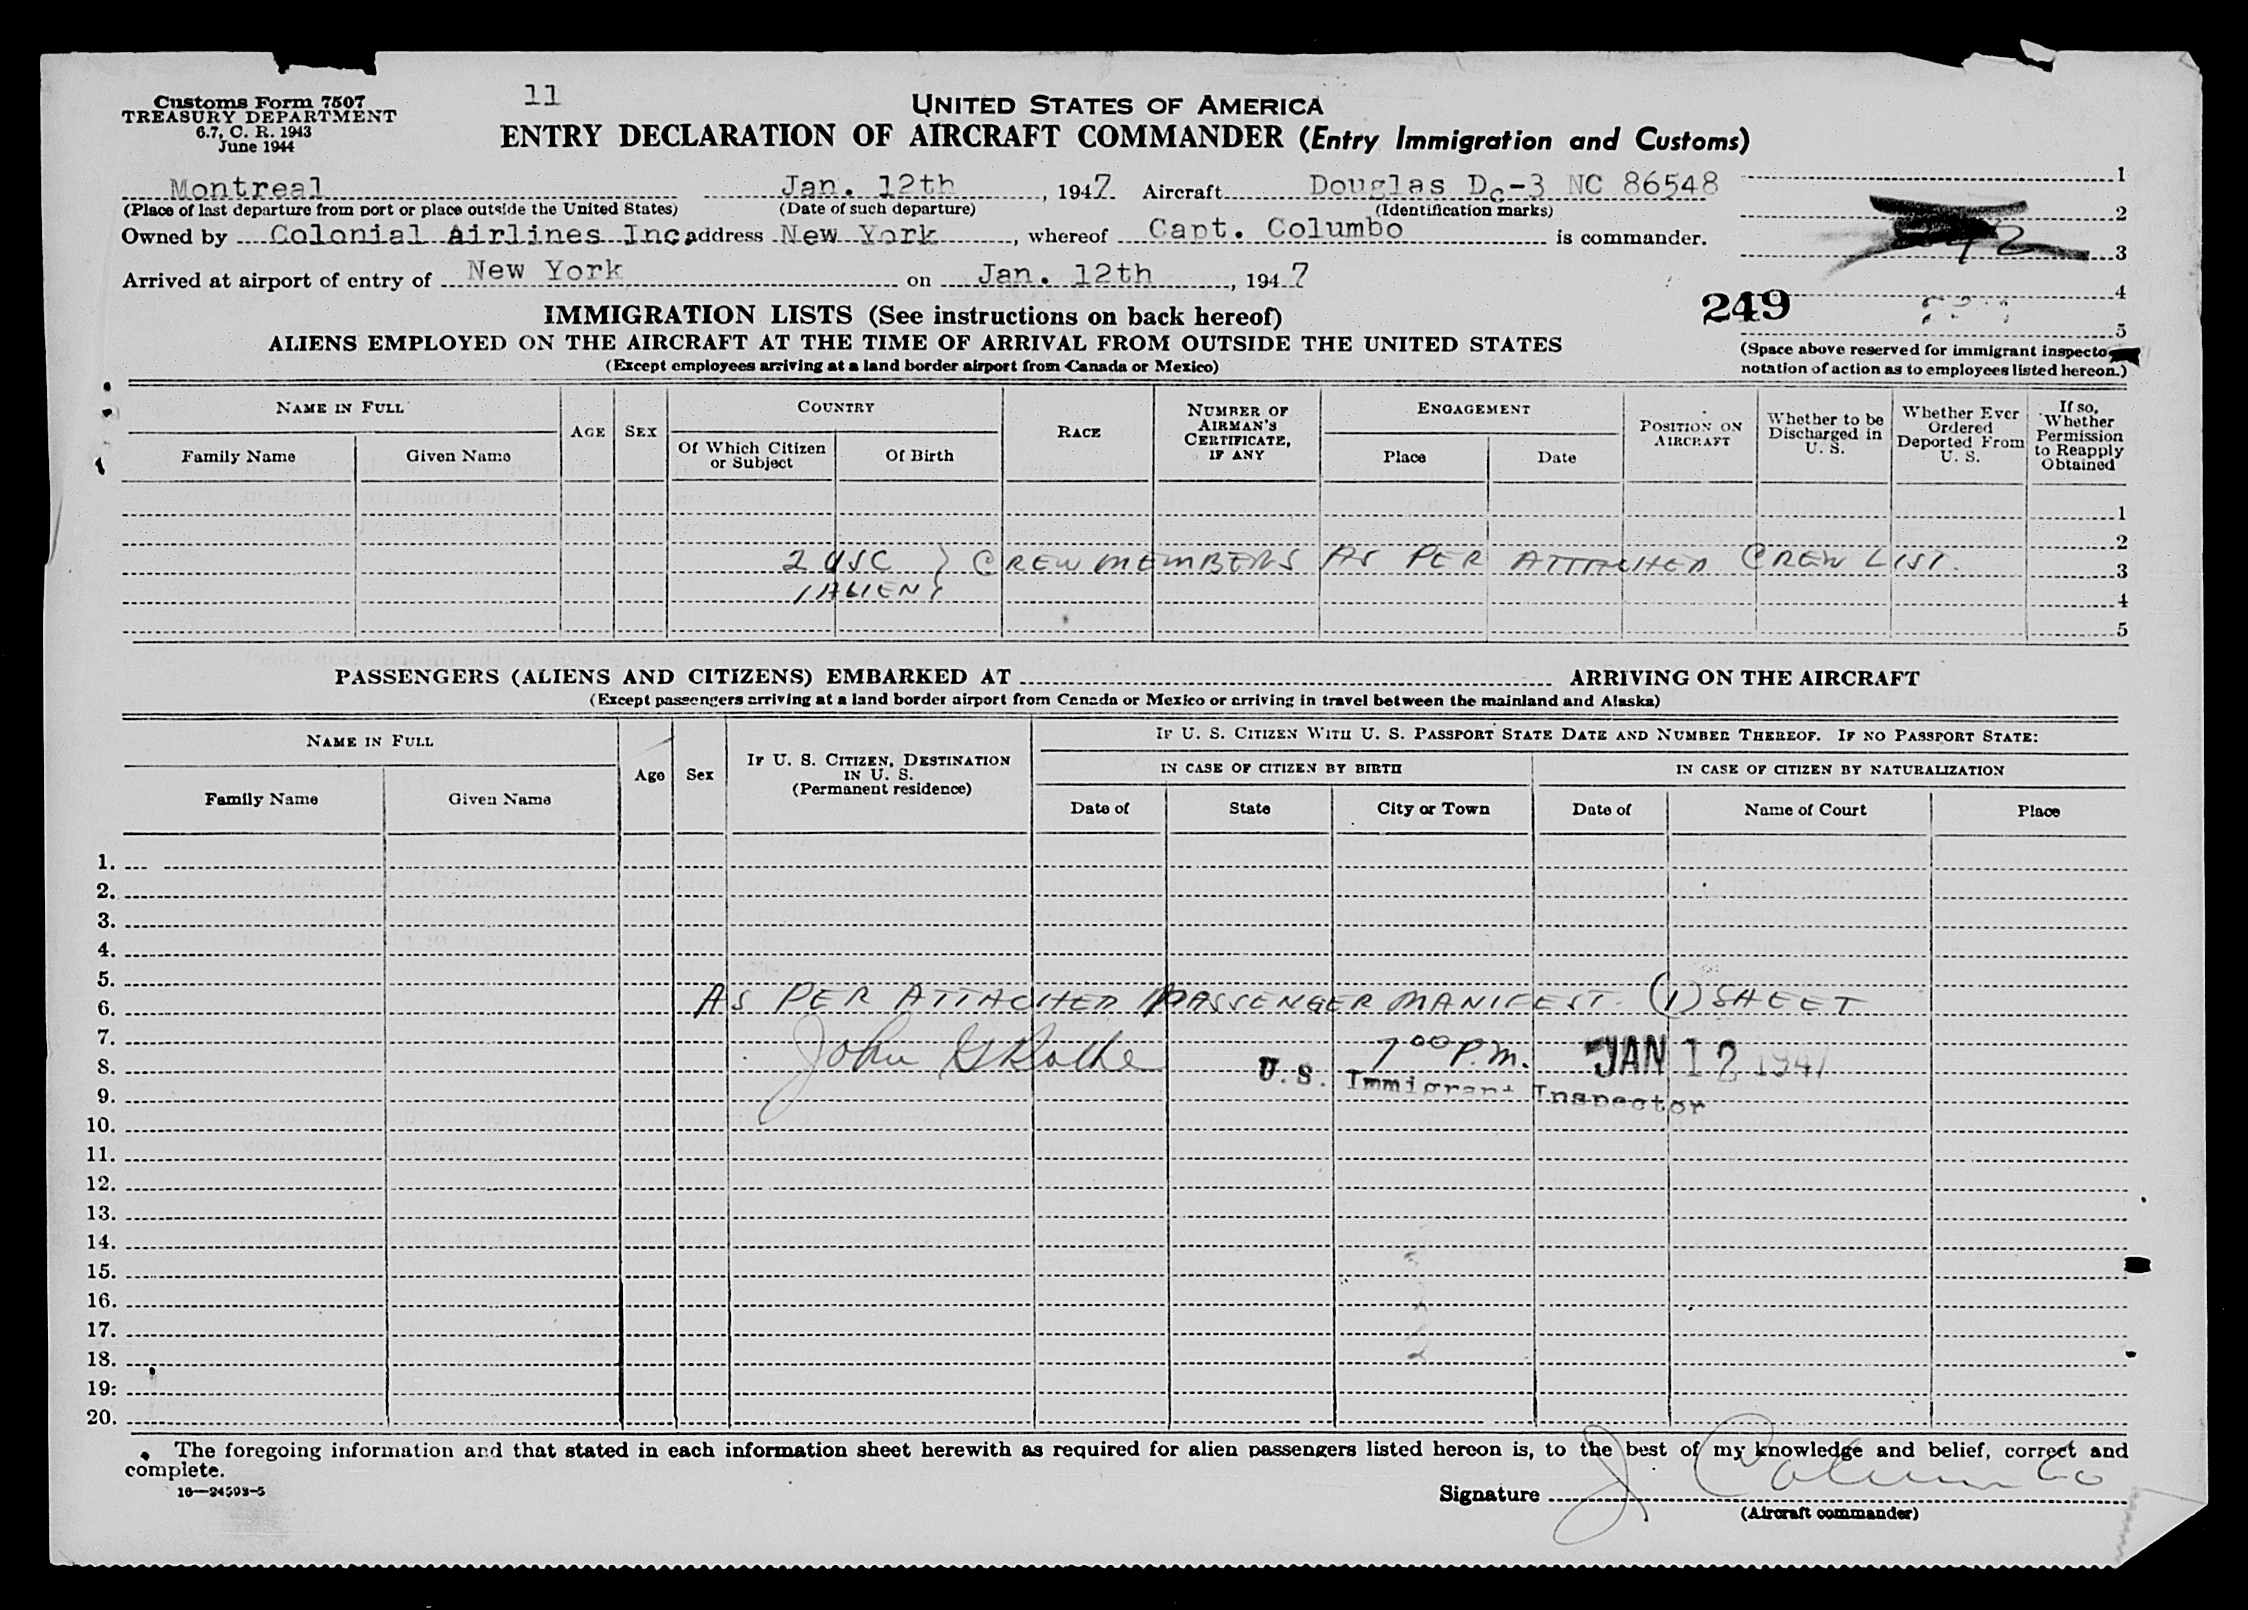 Customs Form 7507
TREASURY DEPARTMENT
6.7, C. R. 1943
June 1944
11
UNITED STATES OF AMERICA
ENTRY DECLARATION OF AIRCRAFT COMMANDER (Entry Immigration and Customs)
Montreal Jan. 12th, 1947 Aircraft Douglas Dc-3 NC 86548
(Place of last departure from port or place outside the United States) (Date of such departure) (Identification marks)
Owned by Colonial Airlines Inc, address New York, whereof Capt. Columbo is commander.
Arrived at airport of entry of New York on Jan. 12th, 1947
1
2
3
4
5
249
(Space above reserved for immigrant inspecto
notation of action as to employees listed hereon.)
IMMIGRATION LISTS (See instructions on back hereof)
ALIENS EMPLOYED ON THE AIRCRAFT AT THE TIME OF ARRIVAL FROM OUTSIDE THE UNITED STATES
(Except employees arriving at a land border airport from Canada or Mexico)
NAME IN FULL
Family Name
Given Name
AGE
SEX
COUNTRY
Of Which Citizen
or Subject
Of Birth
RACE
NUMBER OF
AIRMAN'S
CERTIFICATE,
IF ANY
ENGAGEMENT
Place
Date
POSITION ON
AIRCRAFT
Whether to be
Discharged in
U. S.
Whether Ever
Ordered
Deported From
U. S.
If so,
Whether
Permission
to Reapply
Obtained
1
2
2 USC } CREW MEMBERS AS PER ATTACHED CREW LIST. 3
1 ALIEN } 4
5
PASSENGERS (ALIENS AND CITIZENS) EMBARKED AT ARRIVING ON THE AIRCRAFT
(Except passengers arriving at a land border airport from Canada or Mexico or arriving in travel between the mainland and Alaska)
NAME IN FULL
Family Name
Given Name
Age
Sex
IF U. S. CITIZEN, DESTINATION
IN U. S.
(Permanent residence)
IF U. S. CITIZEN WITH U. S. PASSPORT STATE DATE AND NUMBER THEREOF. IF NO PASSPORT STATE:
IN CASE OF CITIZEN BY BIRTH
Date of
State
City or Town
IN CASE OF CITIZEN BY NATURALIZATION
Date of
Name of Court
Place
1.
2.
3.
4.
5.
6. AS PER ATTACHED PASSENGER MANIFEST. (1) SHEET
7.
8. John G 7 00 P.M. JAN 12 1947
9. U. S. Immigrant Inspector
10.
11.
12.
13.
14.
15.
16.
17.
18.
19.
20.
The foregoing information and that stated in each information sheet herewith as required for alien passengers listed hereon is, to the best of my knowledge and belief, correct and
complete.
16—24593-5
Signature J. Columbo
(Aircraft commander)